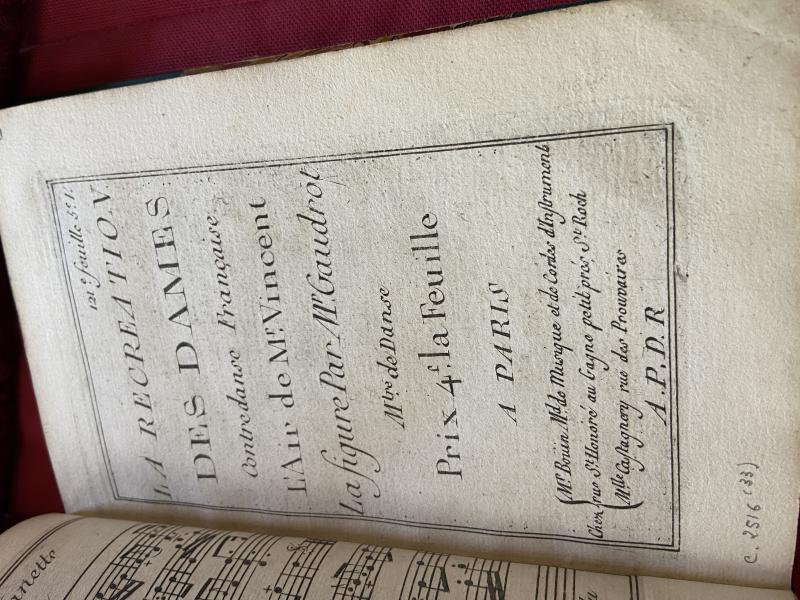 121.e feuille 5.e I.
LA RECREATION
DES DAMES
Contredanse Française
L'Air de Mr. Vincent
La figure Par Mr. Gaudrot
Mtre de Danse
Prix 4.s la Feuille
A PARIS
Mr. Boüin Md. de Musique et de Cordes d'Instrument
Chez rue St. Honoré au Gagne petit prés St. Roch
Mlle Castagnery rue des Prouvaires
A.P.D.R
C.2516 (33)
anette